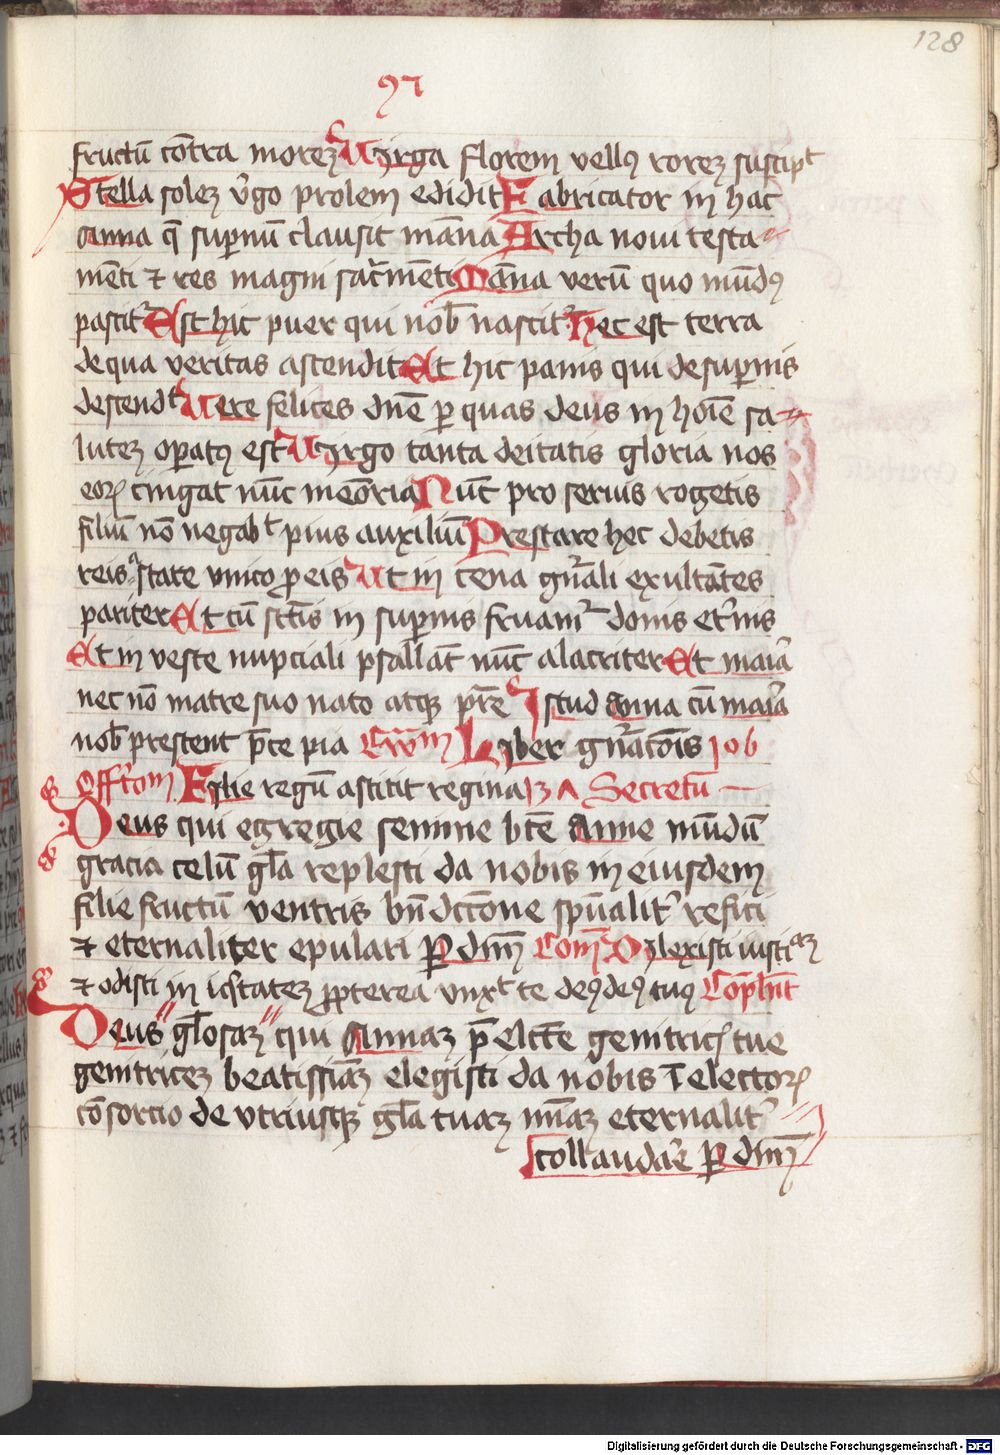 128
97
fructū cōtra morez Uirga florem vellꝰ rorez suscipᵗ
Stella solez v̾go prolem edidit Fabricator in hac
anna q̄ sup̄nū clausit māna Archa noui testa⸗
mēti ⁊ res magni sac̄mēti Māna verū quo mūdꝰ
pascit᷑ Est hic puer qui nob̄ nascit᷑ Hec est terra
de qua veritas ascendit Et hic panis qui de sup̄nis
descendᵗ Uere felices dn̄e ꝑ quas deus in hoīe sa⸗
lutez op̄atꝰ est Uirgo tanta deitatis gloria nos
eoꝝ cingat nūc meōria Nūc pro seruis rogetis
filiū nō negabᵗ pius auxiliū Prestare hec debetis
reis state vnico ꝓ eis Ut in cena gn̄ali exultātes
pariter Et cū sc̄tis in sup̄nis fruam᷑ donis et̾nis
Et in veste nupciali psallāt nūc alacriter Et maīa
nec nō matre suo nato atqꝫ pr̄e Istud anna cū maīa
nob̄ prestent p̄ce pia Ewm̄ Liber gn̄atōis job
Offr̄om Filie regū astitit regina Secretū
Deus qui egregie semine bt̄e Anne mūdū
gracia celū gl̄a replesti da nobis in eiusdem
filie fructū ventris bn̄dcc̄one spūalit᷑ refici
⁊ eternaliter epulari ꝑ dn̄m Com̄ Dilexisti iusticiaꝫ
⁊ odisti in iq̄tatez ꝓpterea vnxᵗ te deꝰ deꝰ tuꝰ Cōpl̄nt
Deus gl̄osaꝫ qui Annaꝫ p̄elc̄te genitricꝭ tue
genitricez beatissīaꝫ elegisti da nobis ī electoꝝ
cōsorcio de vtriusqꝫ gl̄a tuaꝫ īmēaꝫ eternalit᷑
collaudar̄e ꝑ dn̄m
Digitalisierung gefördert durch die Deutsche Forschungsgemeinschaft - DFG